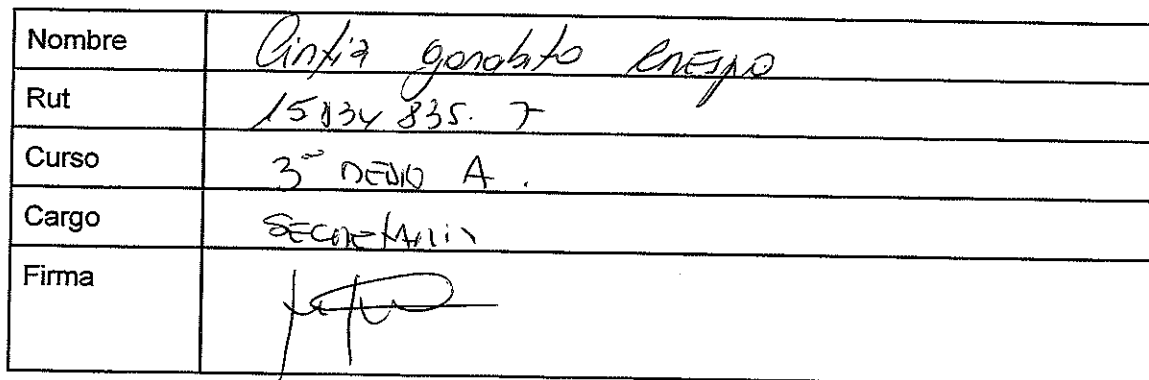 Nombre Cintia garabito crespo
Rut 15134835. 7
Curso 3º MEDIO A.
Cargo SECRETARIA
Firma